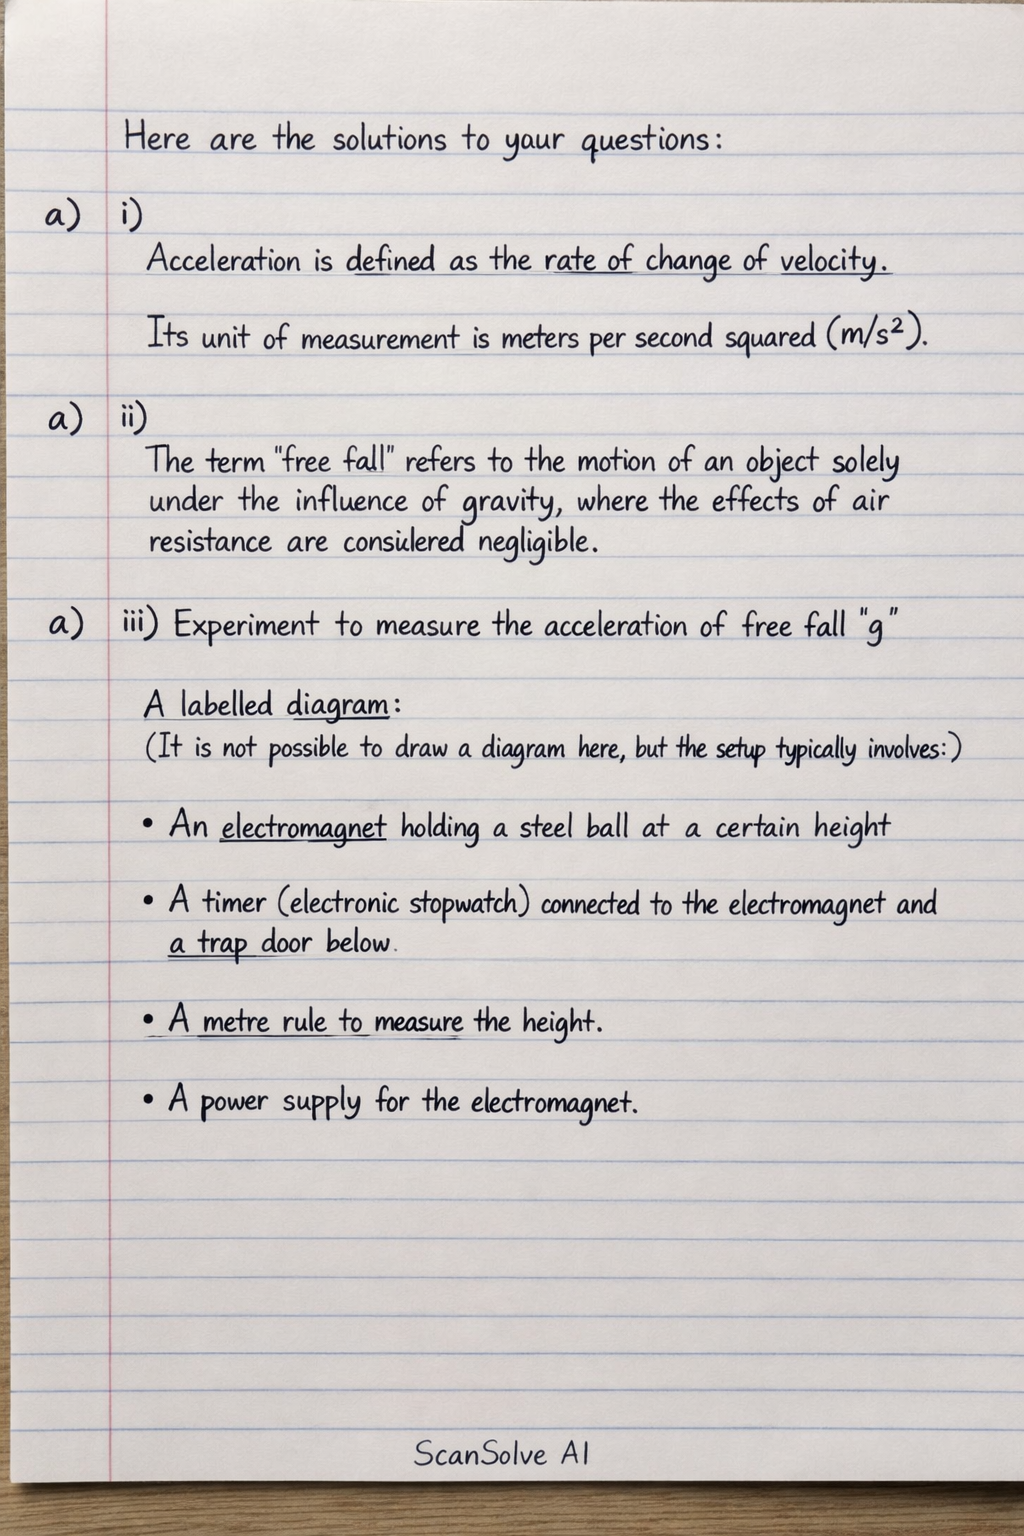 Here are the solutions to your questions:
a) i)
Acceleration is defined as the rate of change of velocity.
Its unit of measurement is meters per second squared (m/s²).
a) ii)
The term "free fall" refers to the motion of an object solely
under the influence of gravity, where the effects of air
resistance are considered negligible.
a) iii) Experiment to measure the acceleration of free fall "g"
A labelled diagram:
(It is not possible to draw a diagram here, but the setup typically involves:)
• An electromagnet holding a steel ball at a certain height
• A timer (electronic stopwatch) connected to the electromagnet and
a trap door below.
• A metre rule to measure the height.
• A power supply for the electromagnet.
ScanSolve AI